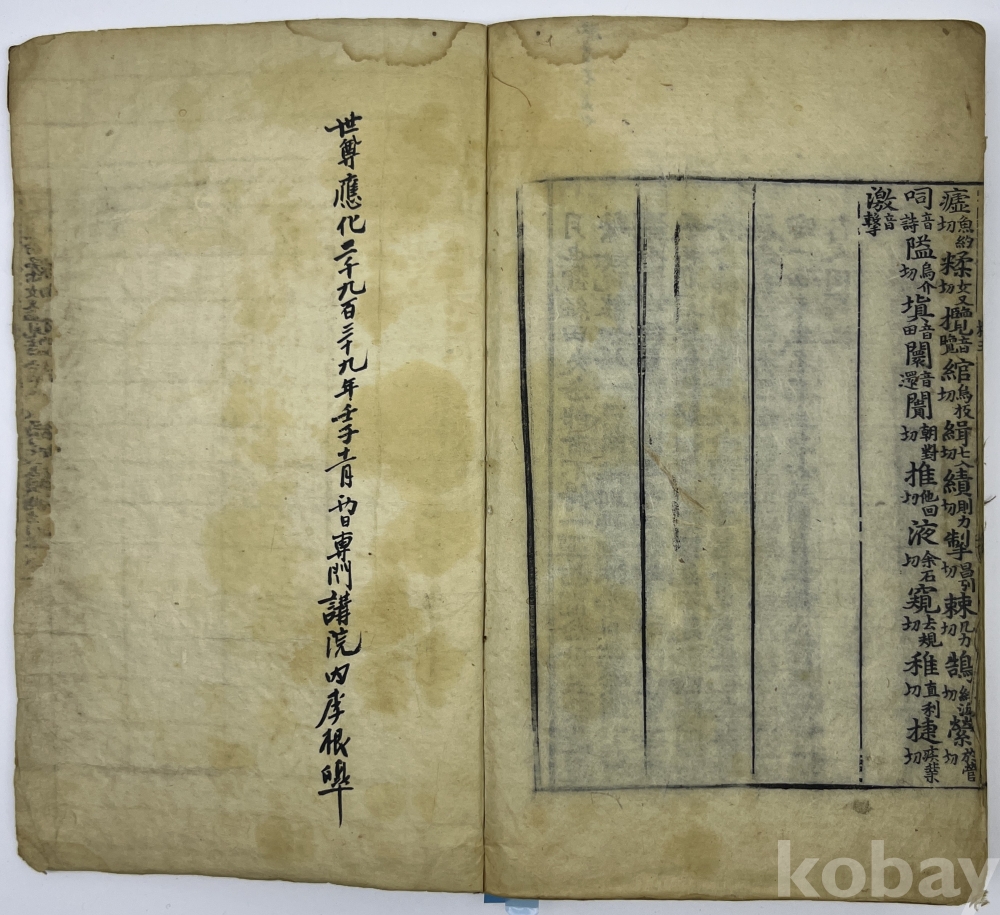 瘧魚約切糅女又切攬音覽綰烏板切緝七入切績則力切掣昌列切棘几力切鵠切縈於營切
呞音詩隘烏介切塡音田闤音還闠胡對切推他回切液余石切窺去規切稚直利切捷疾葉切
激音擊
世尊應化二千九百三十九年壬子十一月初日專門講院內李根皥
kobay